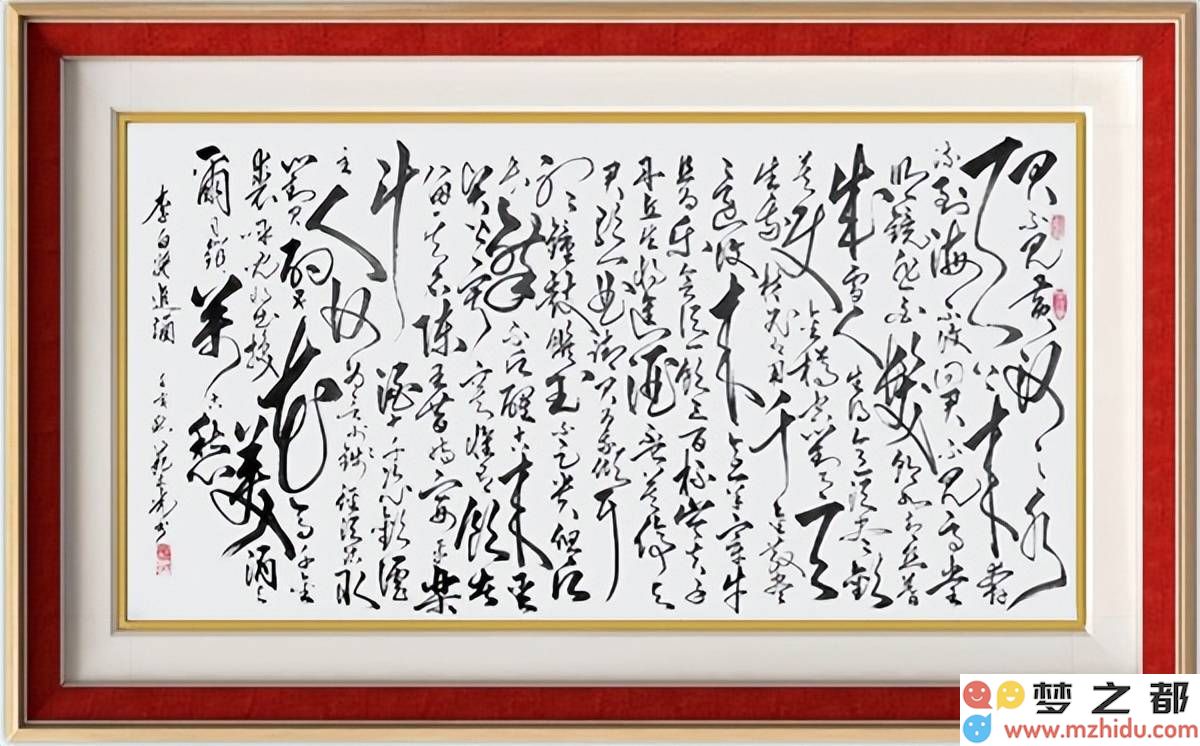 君不见黄河之水
天上来奔
流到海不复回君不见高堂
明镜悲白髮朝如青丝暮
成雪人生得意须尽欢
莫使金樽空对月天
生我材必有用千金散尽
还复来烹羊宰牛
且为乐会须一饮三百杯岑夫子
丹丘生将进酒杯莫停与
君歌一曲请君为我倾耳
听鐘鼓馔玉不足贵但愿
长醉不愿醒古来圣
贤皆寂寞惟有饮者
留其名陈王昔时宴平樂
斗酒十千恣欢谑
主人何为言少钱径须沽取
對君酌五花马千金
裘呼儿将出换美酒与
爾同销萬古愁
李白将进酒
书
梦之都
www.mzhidu.com